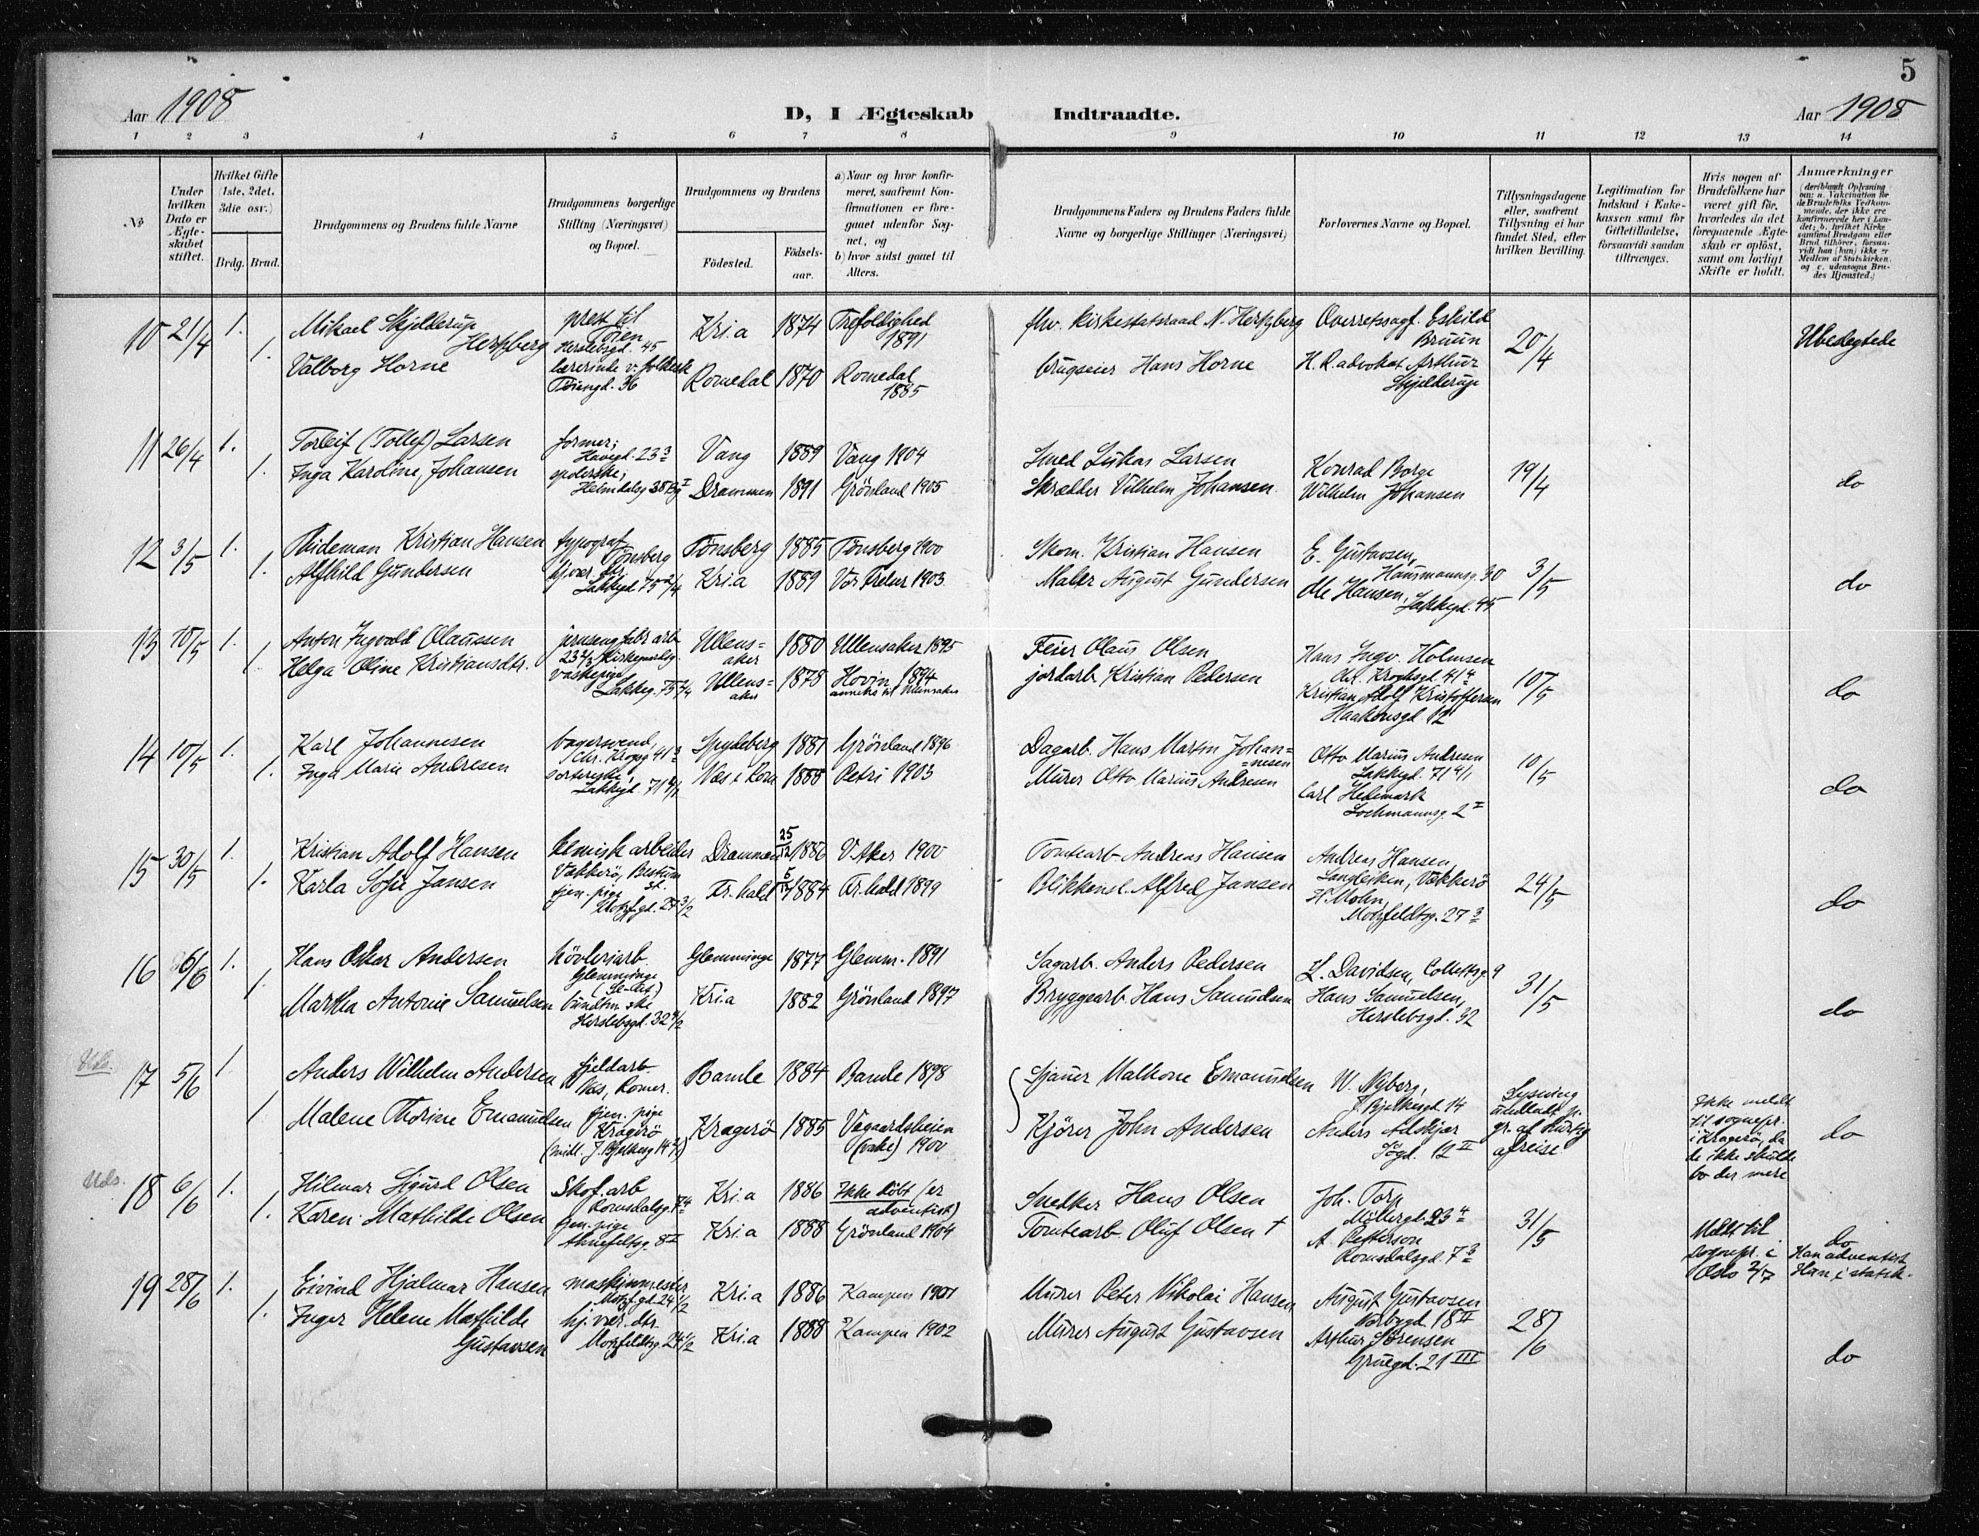 5
Aar 1908
D, I Ægteskab Indtraadte.
Aar 1908
1 2 3 4 5 6 7 8 9 10 11 12 13 14
№
Under hvilken Dato er Ægteskabet stiftet.
Hvilket Gifte (1ste, 2det, 3die osv.)
Brdg. Brud.
Brudgommens og Brudens fulde Navne
Brudgommens borgerlige Stilling (Næringsvei) og Bopæl.
Brudgommens og Brudens
Fødested.
Fødselsaar.
a) Naar og hvor konfirmeret, saafremt Konfirmationen er foregaaet udenfor Sognet, og
b) hvor sidst gaaet til Alters.
Brudgommens Faders og Brudens Faders fulde Navne og borgerlige Stillinger (Næringsvei)
Forlovernes Navne og Bopæl.
Tillysningsdagene eller, saafremt Tillysning ei har fundet Sted, efter hvilken Bevilling.
Legitimation for Indskud i Enkekassen samt for Giftetilladelse, forsaavidt saadan tiltrænges.
Hvis nogen af Brudefolkene har været gift før, hvorledes da det foregaaende Ægteskab er opløst, samt om lovligt Skifte er holdt.
Anmærkninger
10 21/4 1. Mikael Skjelderup Hertzberg prest til Tøien Herslebsgd. 45 Kria 1874 Trefoldighed 1891 fhv. kirkestatsraad N. Hertzberg Overretssagf. Eskild Bruun 20/4 Ubeslegtede
1. Valborg Horne lærerinde v. folkesk Tøiengd. 36 Romedal 1870 Romedal 1885 Brugseier Hans Horne H.R. advokat Arthur Skjelderup
11 26/4 1. Torleif (Tollef) Larsen former; Havegd. 23 3 Vang 1889 Vang 1904 Smed Lukas Larsen Konrad Borge 19/4 do
1. Inga Karoline Johansen spolerske; Drammen 1891 Grønland 1905 Skrædder Vilhelm Johansen. Wilhelm Johansen
12 3/5 1. Tideman Kristian Hansen typograf Tønsberg Tønsberg 1885 Tønsberg 1900 Skom. Kristian Hansen E. Gustavsen, Hausmannsg. 30 3/5 do
1. Alfhild Gundersen hj.vær. dtr. Lakkegd. Kria 1889 Vor Frelser 1903 Maler August Gundersen Ole Hansen, Lakkegd. 45
13 10/5 1. Anton Ingvald Olaussen Ullensaker 1880 Ullensaker 1895 Feier Olaus Olsen Hans Ingv. Holmsen Chr. Kroghsgd 41 4 10/5 do
1. Helga Oline Kristiansdtr. vaskepige Lakkeg. 75 Ullensaker 1878 Hovin 1894 anneks til Ullensaker jordarb. Kristian Pedersen Kristian Adolf Kristoffersen Haakonsgd 12
14 10/5 1. Karl Johannesen bagersvend, Chr. Krogsg 41 3 Spydeberg 1881 Grønland 1896 Dagarb. Hans Martin Johannesen Otto Marius Andresen Lakkegd. 71 10/5 do
1. Inga Marie Andresen sorterske, Lakkegd. 71 Næs i Rom 1888 Petri 1903 Murer Otto Marius Andresen Carl Hedemark Lochmannsg. 2 I
15 30/5 1. Kristian Adolf Hansen kemisk arbeider Vækkerø, Bestum st. Drammen 25/12 1886 V. Aker 1900 Tomtearb. Andreas Hansen Andreas Hansen, Langleiken, Vækkerø 24/5 do
1. Karla Sofie Jansen tjen. pige Motzf.gd. 27 3/2 Fr.hald 1884 Fr.hald 1899 Blikkensl. Alfred Jansen H. Mohn, Motzfeldtsg. 27 3
16 6/6 1. Hans Oskar Andersen høvleriarb. Glemminge Glemminge 1877 Glemm. 1891 Sagarb. Anders Pedersen L. Davidsen, Collettsg 9 31/5 do
1. Martha Antonie Samuelsen Herslebsgd. 32 Kria 1882 Grønland 1897 Bryggearb. Hans Samuelsen Hans Samuelsen, Herslebsgd. 32
Uds.
17 5/6 1 Anders Wilhelm Andersen fjeldarb. Næs, Romer. Bamle 1884 Bamle 1898 Sjauer Malkone Emanuelsen W. Nyberg, J. Bjelkesgd. 14 Lysning udelatt p. gr. af hurtig afreise Ikke meldt til sognepr. i Kragerø, da de ikke skulde bo der mere do
1 Malene Thorine Emanuelsen tjen. pige Kragerø Kragerø 1885 Vegaardsheien 1900 Kjører John Andersen Anders Askjær 12 II
Uds.
18 6/6 1. Hilmar Sigurd Olsen Skof. arb Romsdalsg. 7 4 Kria 1886 Ikke døbt (er adventist) Snedker Hans Olsen Joh. Torp Møllergd 23 4 31/5 Meldt til sognepr. i Oslo 2/7 do Han adventist
1. Karen Mathilde Olsen tjen. pige 8 II Kria 1888 Grønland 1904 Tomtearb. Oluf Olsen † A. Petterson Romsdalsgd. 7 3
19 28/6 1. Eivind Hjalmar Hansen maskinmester Motzf.gd. 24 1/2 Kria 1886 Kampen 1901 Murer Peter Nikolai Hansen August Gustavsen 18 II 28/6 do
1. Inger Helene Mathilde Gustavsen hj.vær. dtr. Motzfeldtsg. 24 1/2 Kria 1888 Kampen 1902 Murer August Gustavsen Arthur Sørensen Gruegd. 21 III